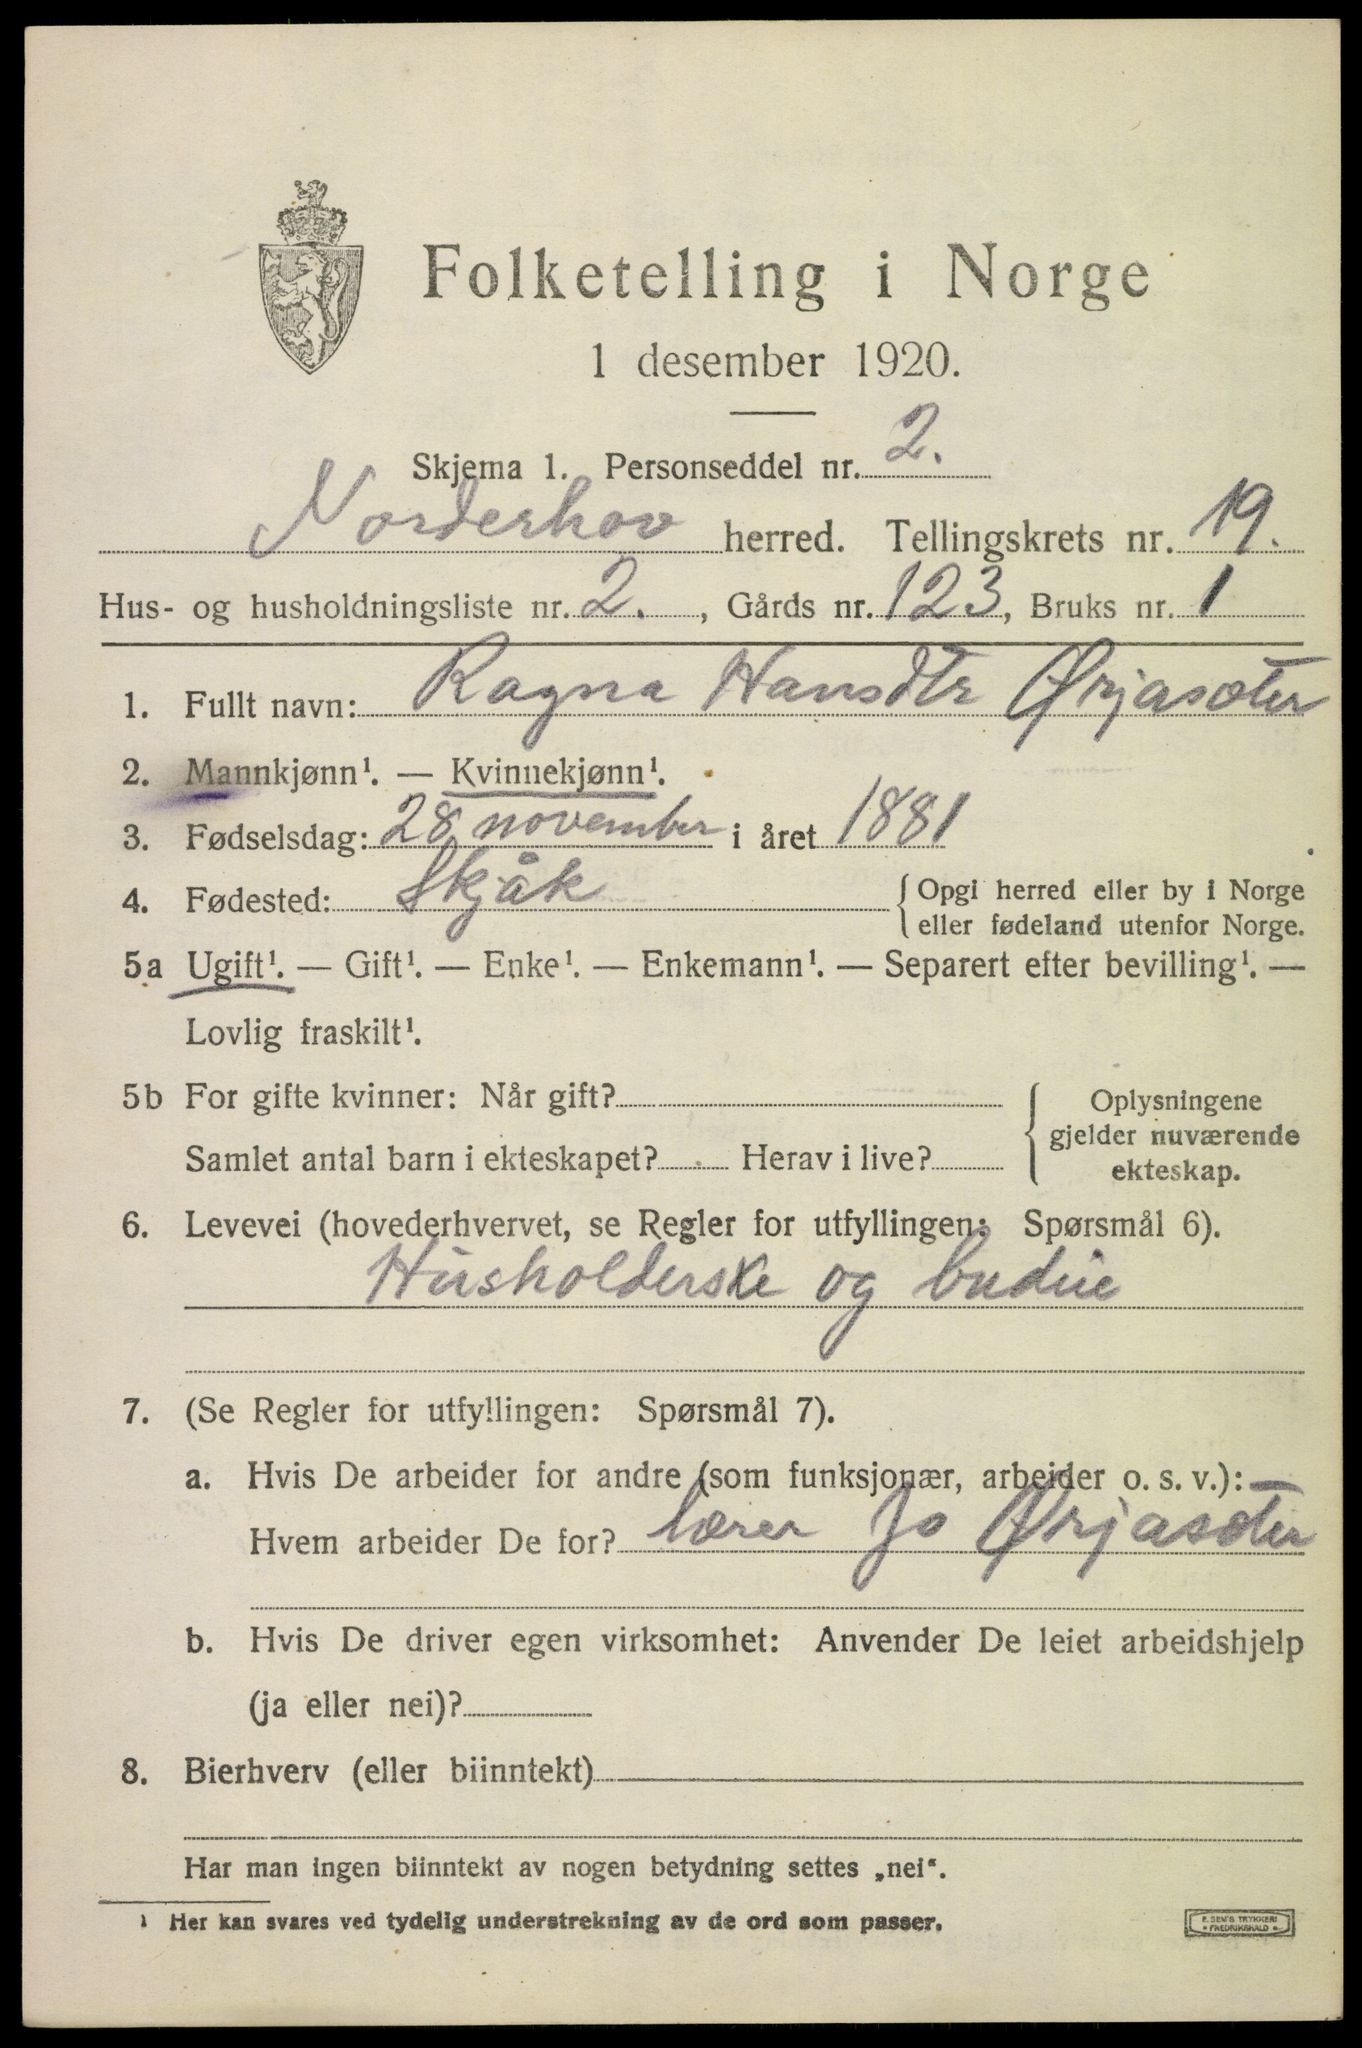 Folketelling i Norge
1 desember 1920.
Skjema 1. Personseddel nr. 2.
Norderhov herred. Tellingskrets nr. 19.
Hus- og husholdningsliste nr. 2. , Gårds nr. 123, Bruks nr. 1
1. Fullt navn: Ragna Hansdtr Ørjasæter
2. Mannkjønn¹. — Kvinnekjønn¹.
3. Fødselsdag: 28 november i året 1881
4. Fødested: Skjåk { Opgi herred eller by i Norge
eller fødeland utenfor Norge.
5a Ugift¹. — Gift¹. — Enke¹. — Enkemann¹. — Separert efter bevilling¹. —
Lovlig fraskilt¹.
5b For gifte kvinner: Når gift? { Oplysningene
gjelder nuværende
Samlet antal barn i ekteskapet? Herav i live?
ekteskap.
6. Levevei (hovederhvervet, se Regler for utfyllingen: Spørsmål 6).
Husholderske og budeie
7. (Se Regler for utfyllingen: Spørsmål 7).
a. Hvis De arbeider for andre (som funksjonær, arbeider o. s. v.):
Hvem arbeider De for? lærer Jo Ørjasæter
b. Hvis De driver egen virksomhet: Anvender De leiet arbeidshjelp
(ja eller nei)?
8. Bierhverv (eller biinntekt)
Har man ingen biinntekt av nogen betydning settes „nei“.
¹ Her kan svares ved tydelig understrekning av de ord som passer.
E. SEM'S TRYKKERI
FREDRIKSHALD